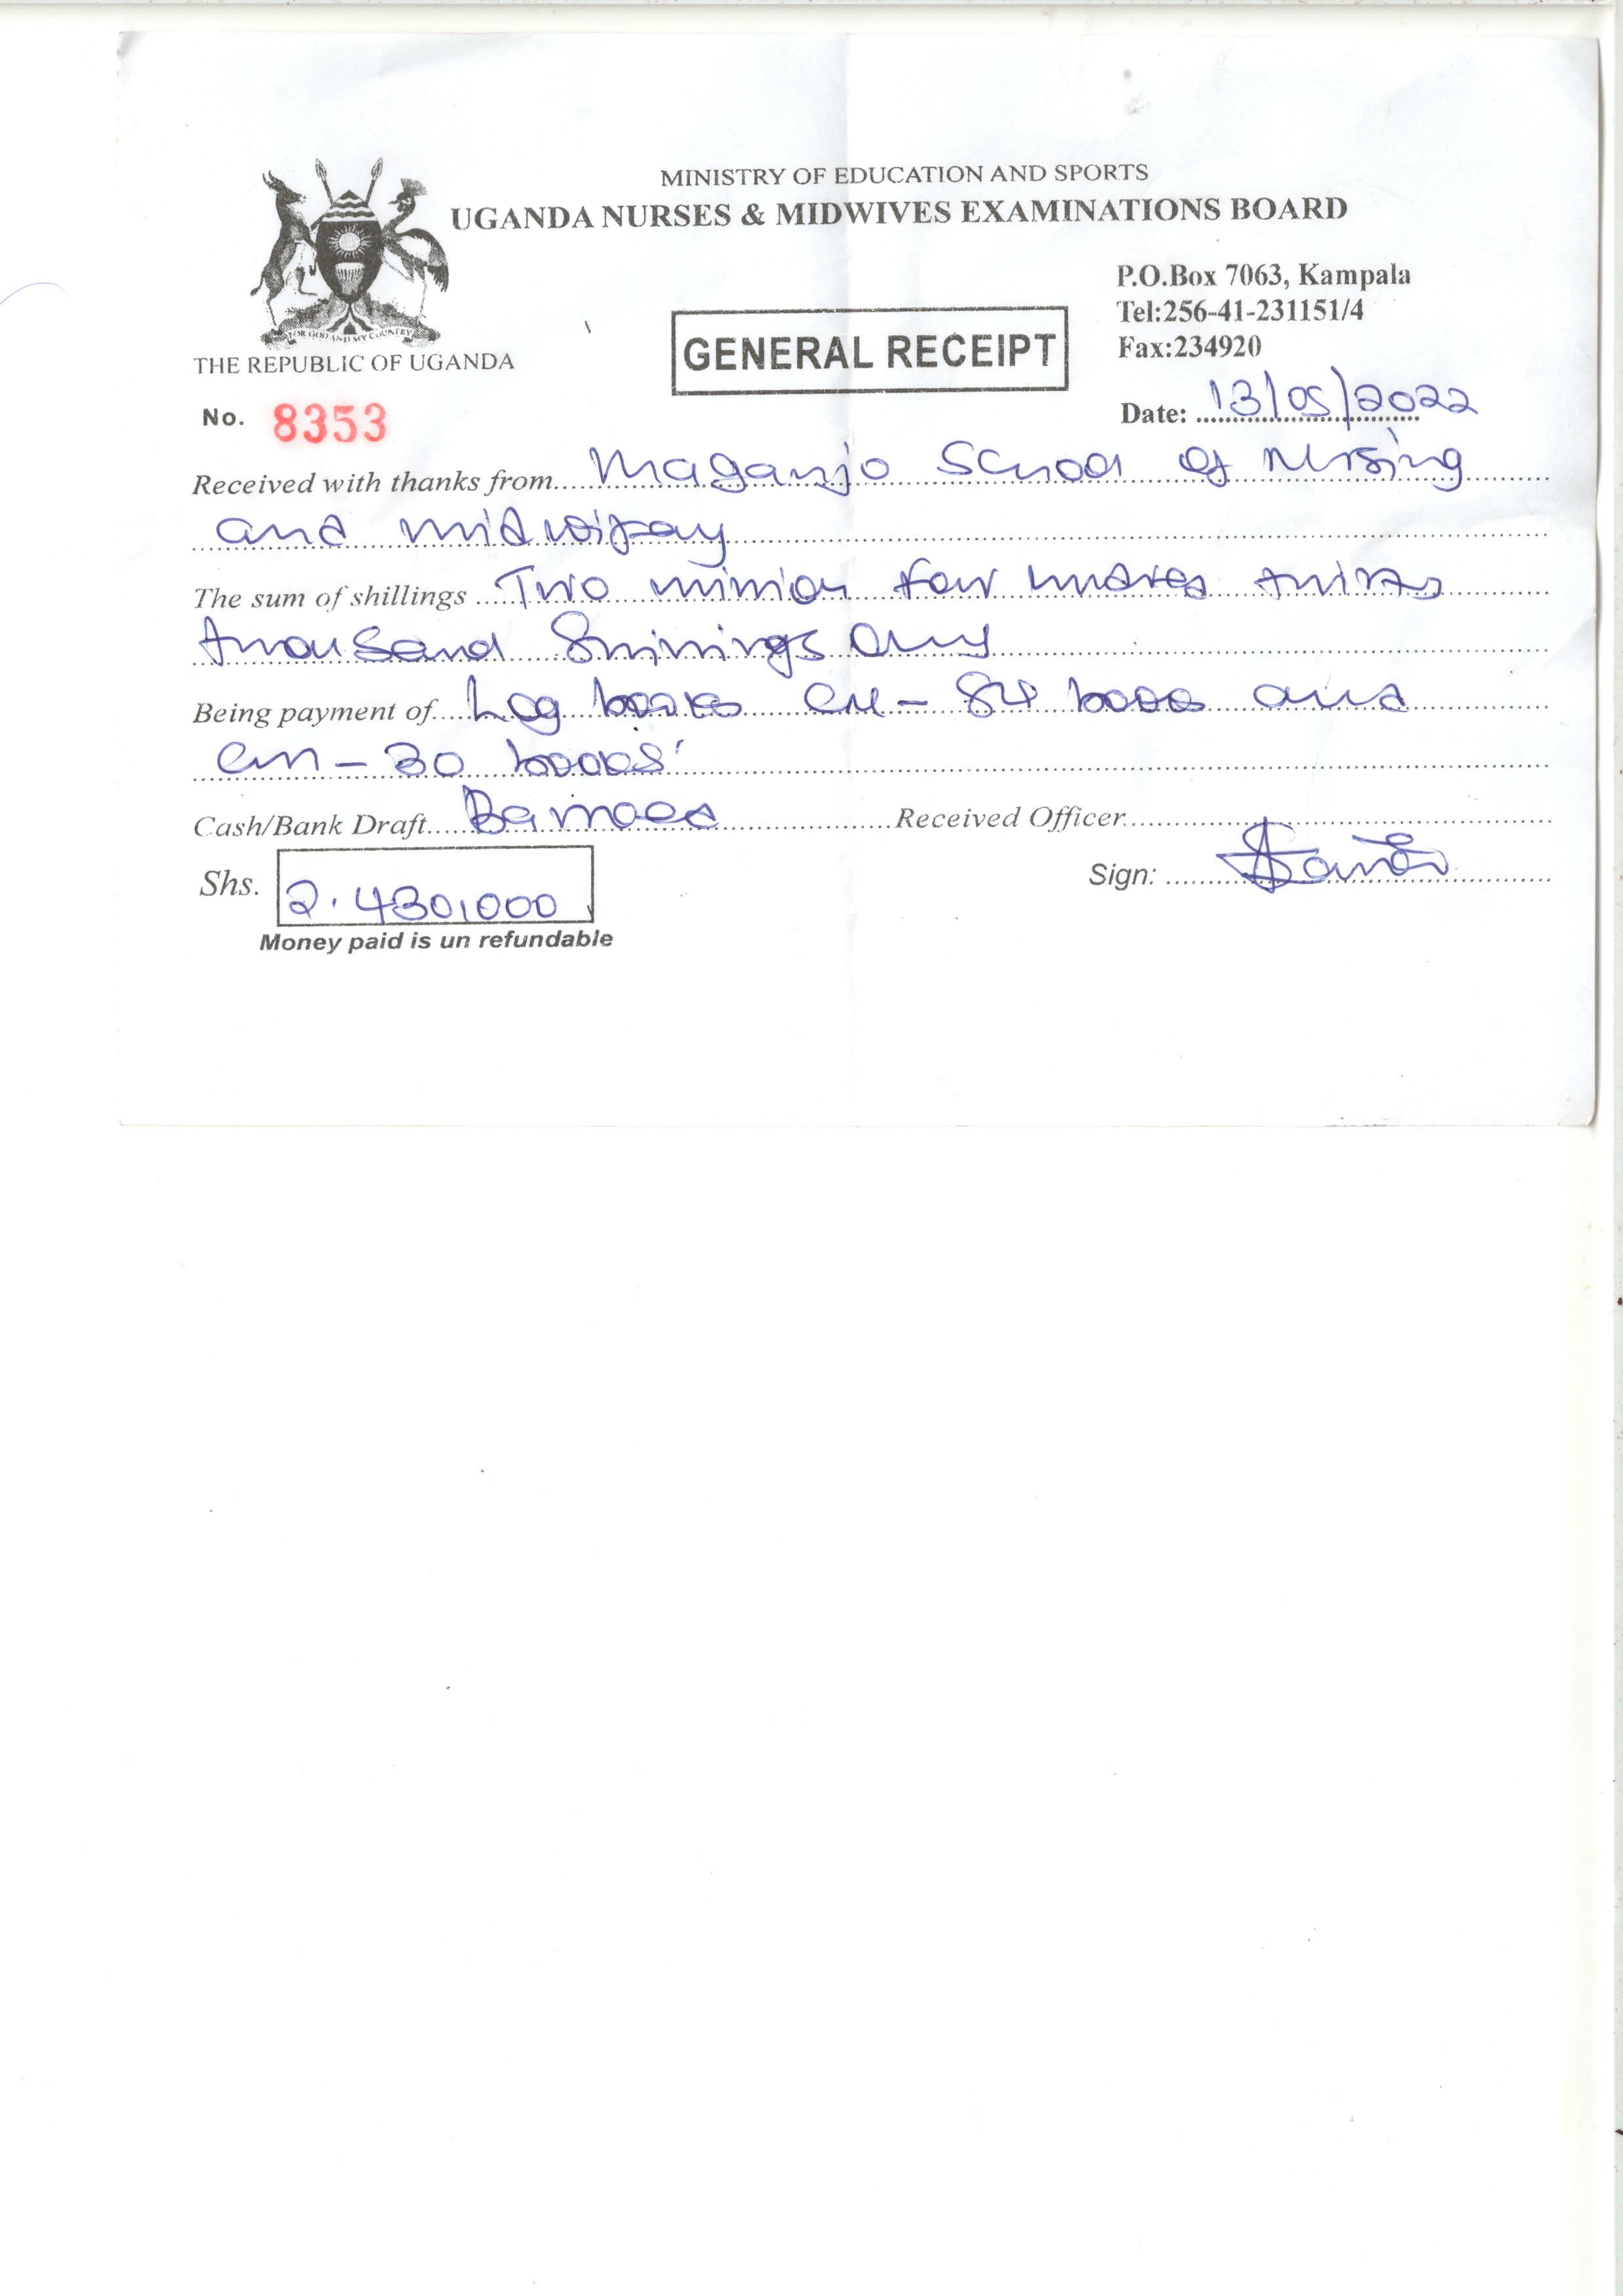 MINISTRY OF EDUCATION AND SPORTS
UGANDA NURSES & MIDWIVES EXAMINATIONS BOARD
P.O.Box 7063, Kampala
Tel:256-41-231151/4
Fax:234920
FOR GOD AND MY COUNTRY
THE REPUBLIC OF UGANDA
GENERAL RECEIPT
No. 8353
Date: 13/05/2022
Received with thanks from Maganjo School of Nursing
and midwifery
The sum of shillings Two million four hundred thirty
thousand Shillings Only
Being payment of Log books CN - 84 books and
CM - 30 books
Cash/Bank Draft Received Officer
Shs. 2.430,000 Sign:
Money paid is un refundable